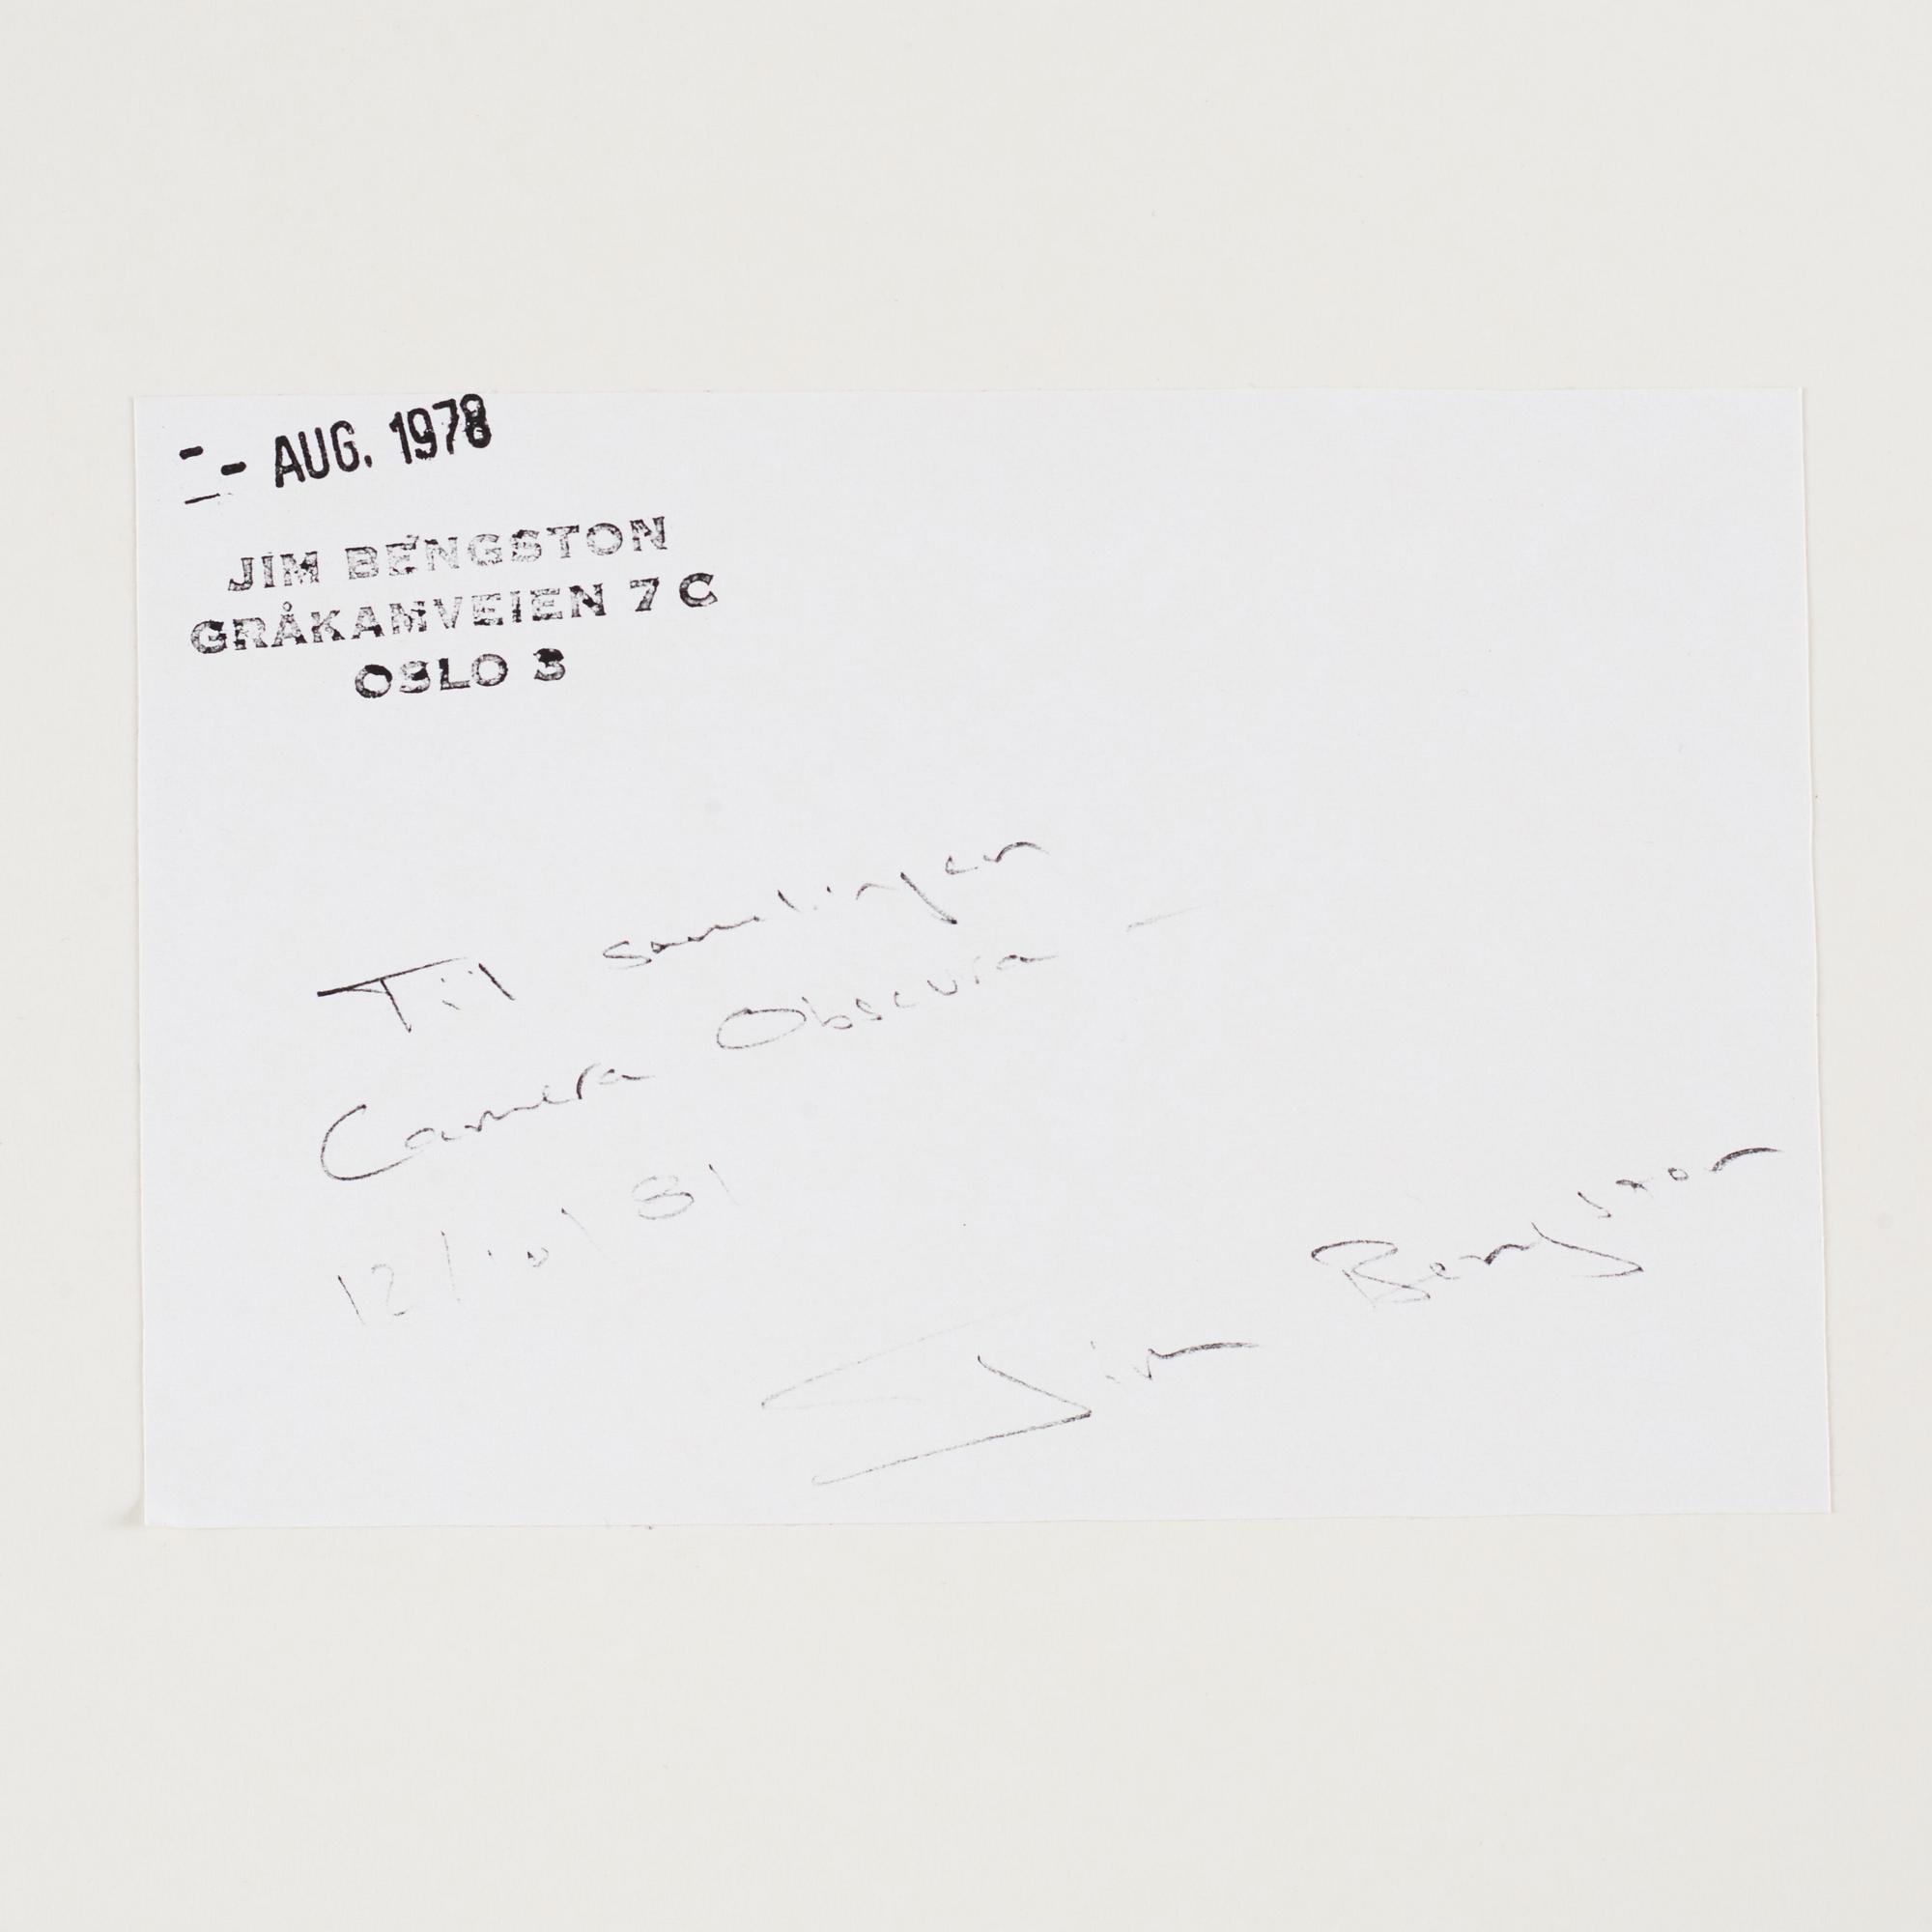 - AUG. 1978
JIM BENGSTON
GRÅKAMVEIEN 7 C
OSLO 3
Til samlingen
Camera Obscura –
12/10/81
Jim Bengston